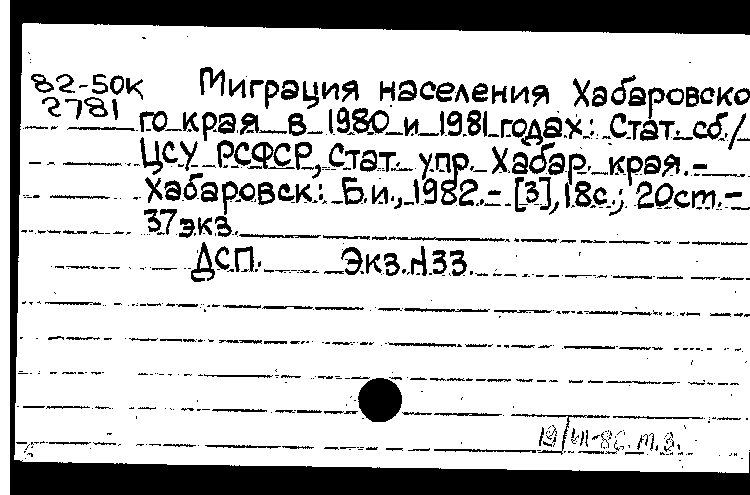 82-50к Миграция населения Хабаровско
2781 го края в 1980 и 1981 годах: Стат. сб./
ЦСУ РСФСР, Стат. упр. Хабар. края.-
Хабаровск: Б.и., 1982.- [3], 18с.; 20см.-
37экз.
ДСП. Экз.N33.
19/VII-86. М.З.